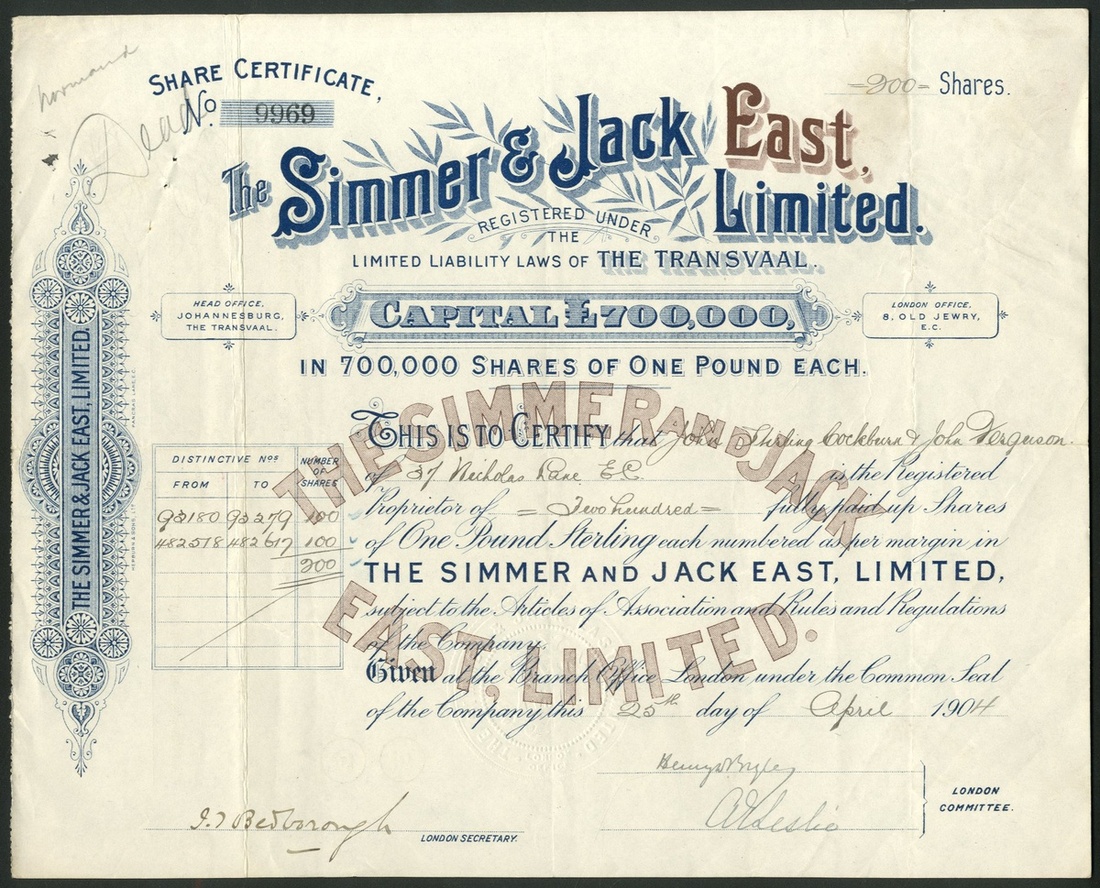 Normand
Dead
SHARE CERTIFICATE,
No. 9969
200 Shares.
The Simmer & Jack East, Limited.
REGISTERED UNDER
THE
LIMITED LIABILITY LAWS OF THE TRANSVAAL.
HEAD OFFICE,
JOHANNESBURG,
THE TRANSVAAL.
CAPITAL £700,000,
LONDON OFFICE,
8, OLD JEWRY,
E.C.
IN 700,000 SHARES OF ONE POUND EACH.
THE SIMMER & JACK EAST, LIMITED.
THE SIMMER AND JACK
EAST, LIMITED.
This is to Certify that John Stirling Cockburn & John Ferguson.
of 37 Nicholas Lane E.C. is the Registered
Proprietor of = Two hundred = fully paid up Shares
of One Pound Sterling each numbered as per margin in
THE SIMMER AND JACK EAST, LIMITED,
subject to the Articles of Association and Rules and Regulations
of the Company.
Given at the Branch Office London under the Common Seal
of the Company this 25th day of April 1904
DISTINCTIVE Nos NUMBER OF SHARES
FROM TO
92180 92279 100
482518 482617 100
200
LONDON
COMMITTEE.
A Leslie
J.T Bedborough
LONDON SECRETARY.